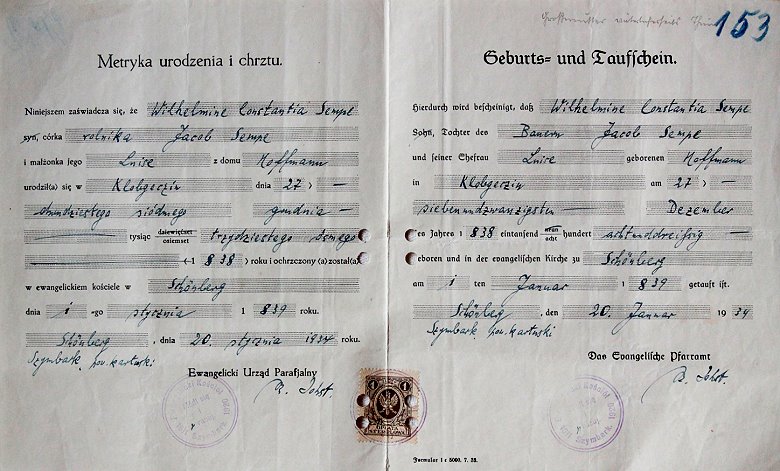 153
Metryka urodzenia i chrztu.
Niniejszem zaświadcza się, że Wilhelmine Constantia Sempe
syn, córka rolnika Jacob Sempe
i małżonka jego Luise z domu Hoffmann
urodził(a) się w Klobschin dnia 27) —
dwudziestego siódmego grudnia —
— tysiąc dziewięćset osiemset trzydziestego ósmego
— (-1 838) roku i ochrzczony (a) został(a)
w ewangelickim kościele w Schönberg
dnia 1 -go stycznia 1 839 roku.
Schönberg, dnia 20. stycznia 1934 roku.
Szymbark, pow. kartuski
Ewangelicki Urząd Parafjalny
Geburts- und Taufschein.
Hierdurch wird bescheinigt, daß Wilhelmine Constantia Sempe
Sohn, Tochter des Bauern Jacob Sempe
und seiner Ehefrau Luise geborenen Hoffmann
in am 27) —
siebenundzwanzigsten — Dezember
es Jahres 1 838 eintausend neun acht hundert achtunddreissig —
eboren und in der evangelischen Kirche zu Schönberg
am 1 ten Januar 1 839 getauft ist.
Schönberg, den 20. Januar 19 34
Szymbark, pow. kartuski
Das Evangelische Pfarramt
1
Formular 1 c 5000. 7. 33.